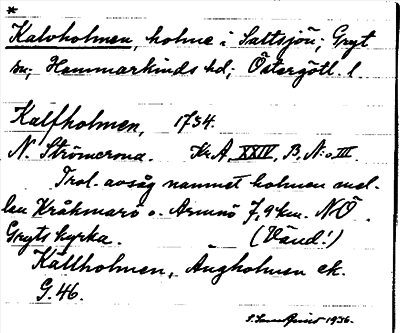 *
Kalvholmen, holme i Saltsjön; Gryt
sn; Hammarkinds hd; Östergötl. l.
Kalfholmen, 1734.
N. Strömcrona. Kr.A, XXIV, B, N:o III.
Trol. avsåg namnet holmen mel-
lan Kråkmarö o. Armnö 7,9 km. NÖ.
Gryts kyrka. (Vänd!)
Källholmen, Ängholmen ek.
G. 46.
1936.